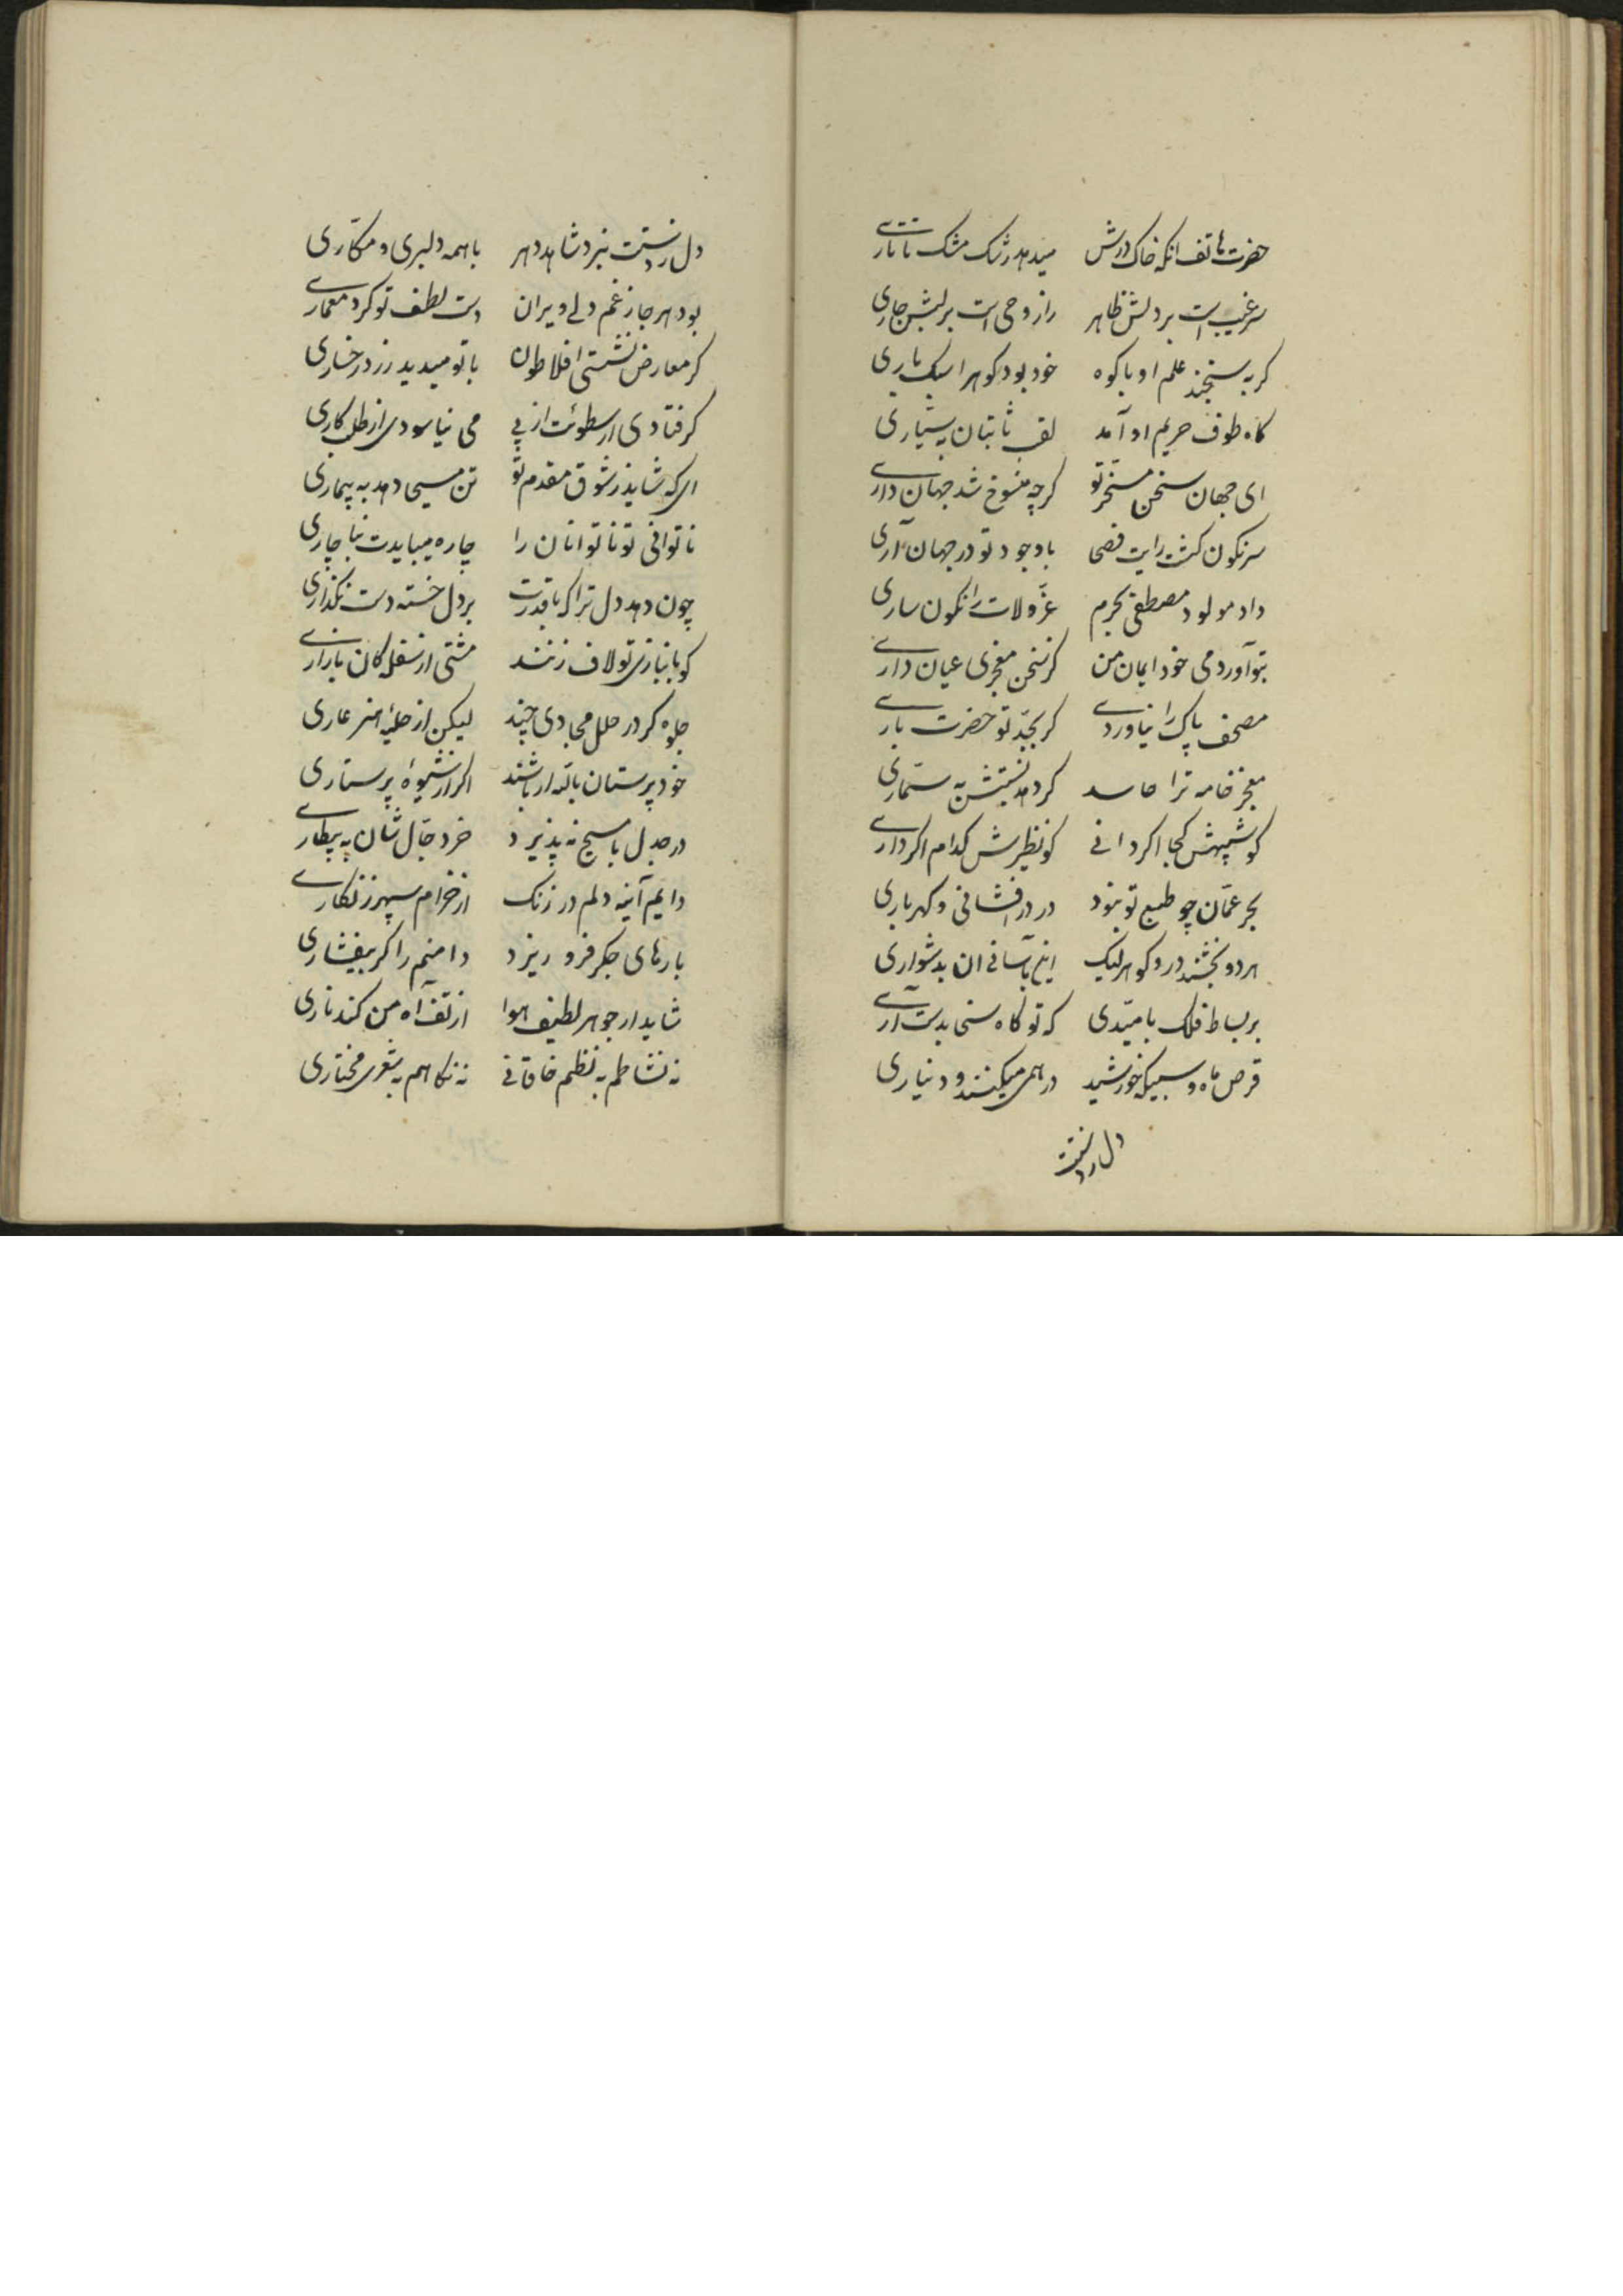 حضرت هاتف انکه خاک درش میدهد رشک مشک تاتاری
سر غیب است بر دلش ظاهر راز وحی است بر لبش جاری
کر به سنجند علم او با کوه خود بود کوه را سبک باری
کاه طوف حریم او آمد لقب ثابتان بسیاری
ای جهان سخن مسخر تو کرچه منسوخ شد جهان داری
سرنکون کشت رایت فصحا با وجود تو در جهان آری
داد مولود مصطفی بحرم عزّ و لات را نکون ساری
بتو آوردمی خود ایمان من کر سخن معجزی عیان داری
مصحف پاک را نیاوردی کر بجدّ تو حضرت باری
معجز خامه ترا حاسد کر دهد نسبتش به سحّاری
کو شبیهش کجا اکر دانی کو نظیرش کدام اکر داری
بحر عمّان چو طبع تو نبود در در افشانی و کهرباری
هر دو بخشند در و کوهر لیک این بآسانی ان بدشواری
بر بساط فلک بامیدی که تو کاه سخی بدست آری
قرص ماه و سبیکه خورشید درهمی میکنند و دیناری
دل ز دستت
دل ز دستت نبرد شاهد دهر با همه دلبری و مکّاری
بود هر جا ز غم دلی ویران دست لطف تو کرد معماری
کر معارض نشستی افلاطون با تو میدید زرد رخساری
کر فتادی ارسطوئت از پی می نیاسودی از طلب کاری
ای که شاید ز شوق مقدم تو تن مسیحا دهد به بیماری
ناتوانی تو ناتوانان را چاره میبایدت بناچاری
چون دهد دل ترا که با قدرت بر دل خسته دست نکذاری
کو ببازی تو لاف زنند مشتی از سفله کان بازاری
جلوه کر در حلل جمادی چند لیکن از حلیه هنر عاری
خود پرستان باله ار باشند اکر از شیوهٔ پرستاری
در جدل با مسیح نپذیرد خر دجّال شان به بیطاری
دایم آینه دلم در زنک از خرام سپهر زنکاری
بارهای جکر فرو ریزد دامنم را کر بیفشاری
شاید ار جوهر لطیف هوا از تف آه من کند ناری
نه نشاطم به نظم خاقانی نه نکاهم به شعر مختاری